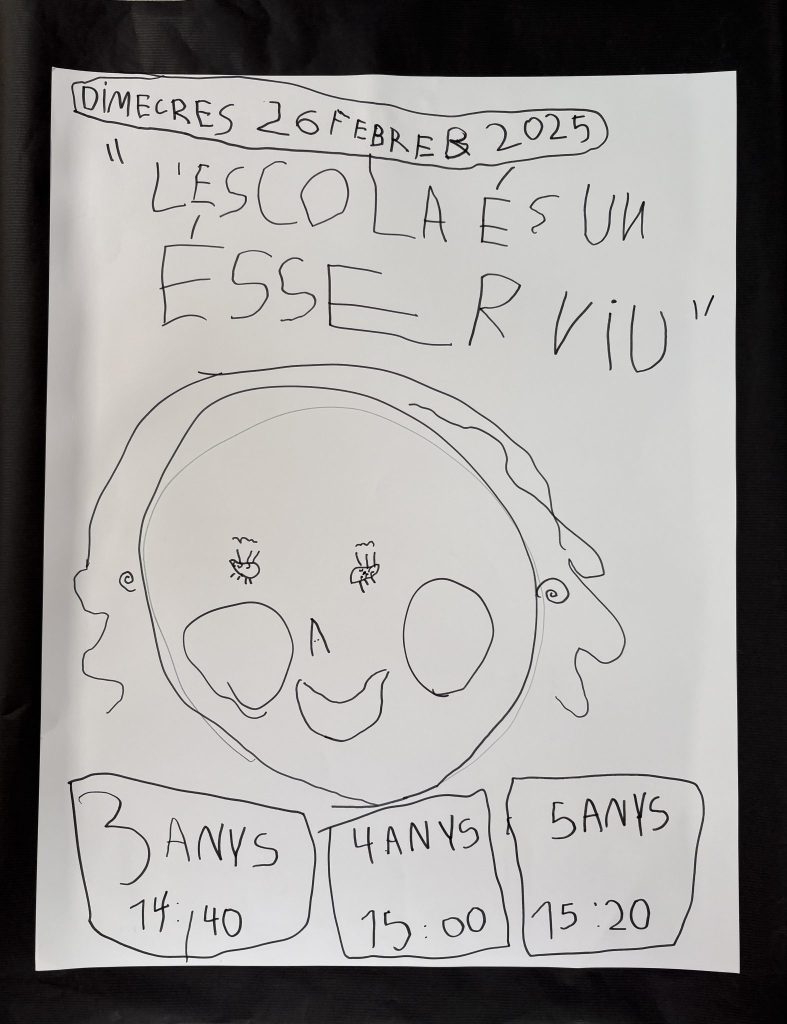 DIMECRES 26 FEBRER 2025
"L'ESCOLA ÉS UN
ÉSSER VIU"
3 ANYS
14:40
4 ANYS
15:00
5 ANYS
15:20